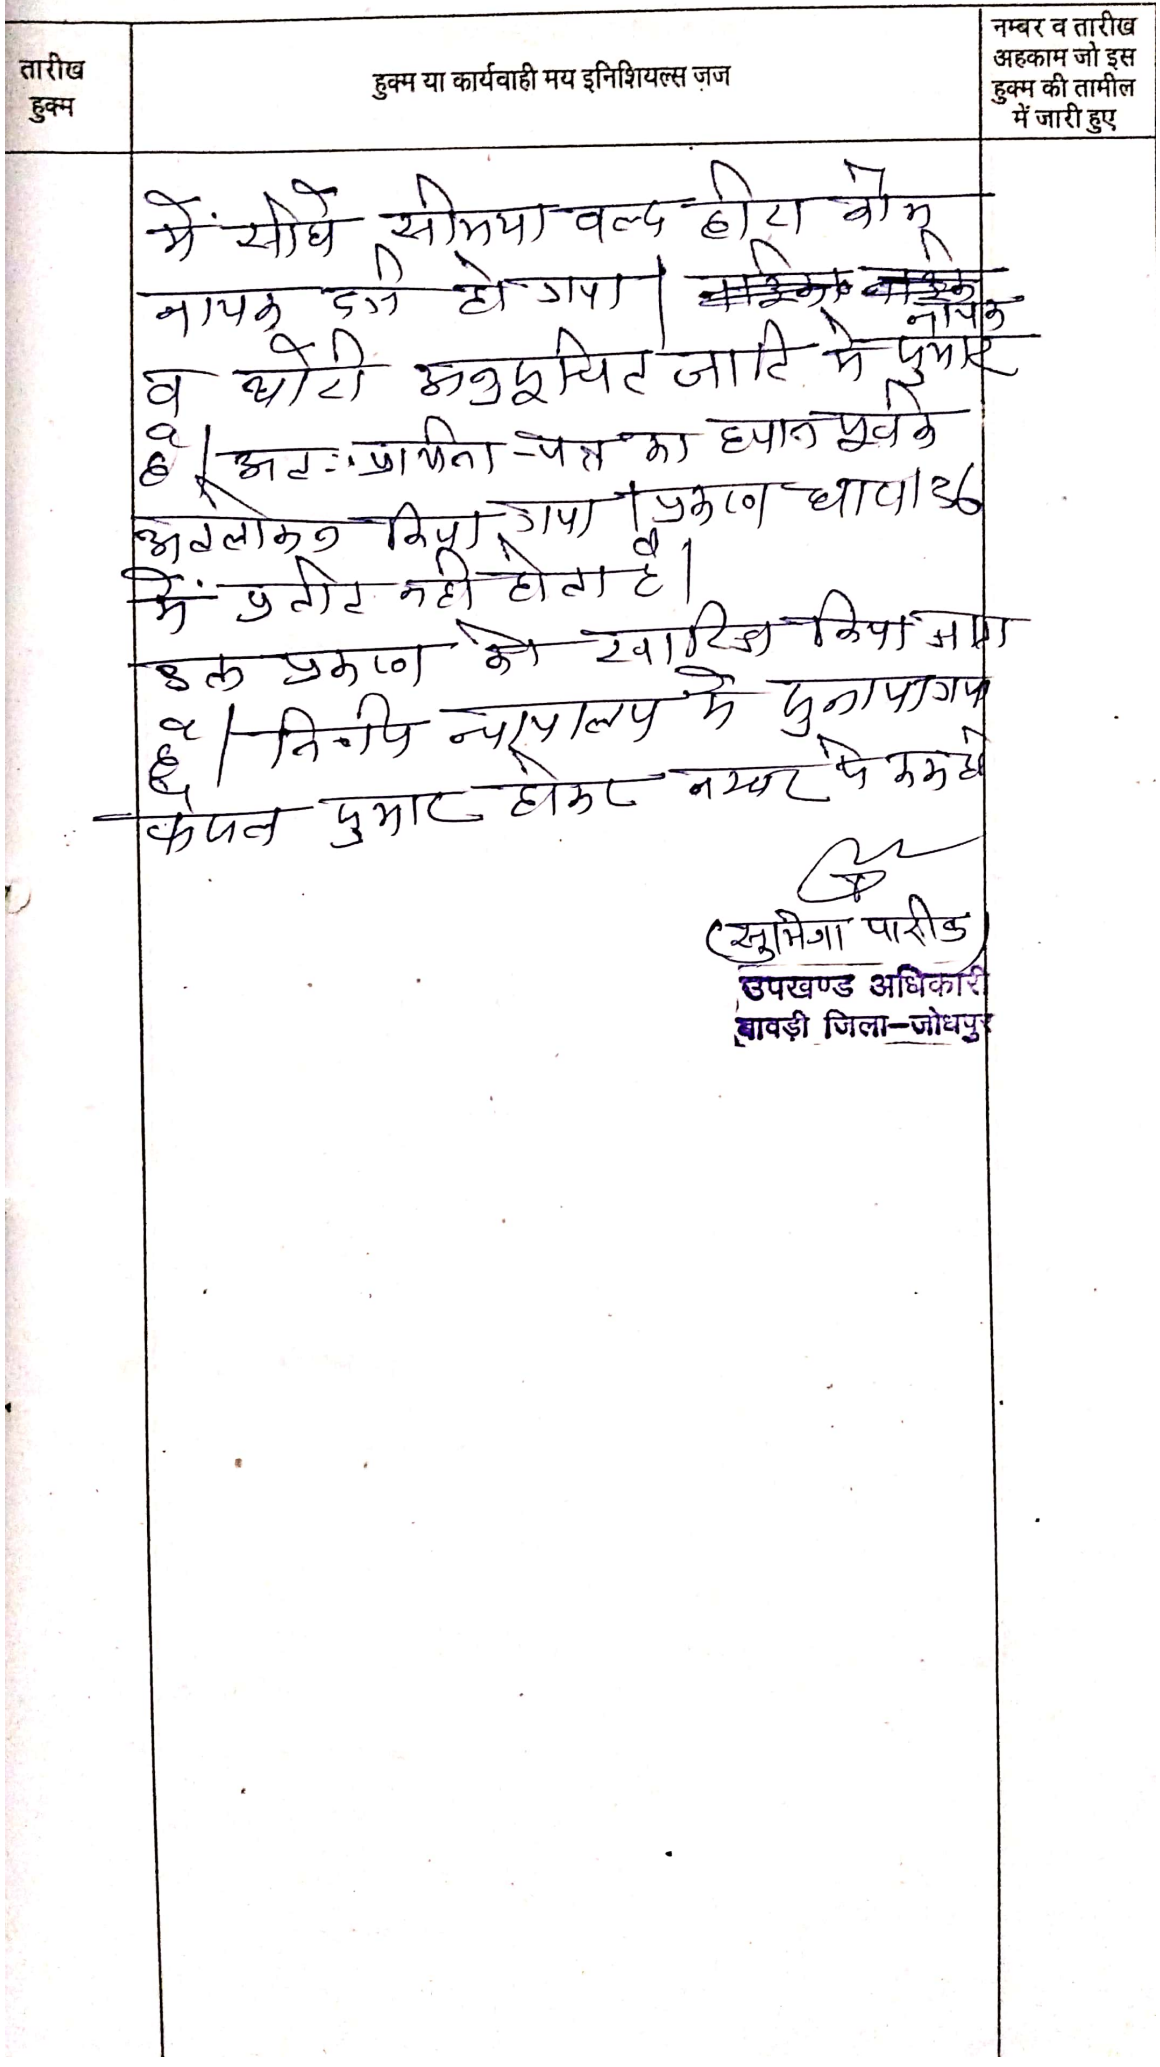 तारीख
हुक्म
हुक्म या कार्यवाही मय इनिशियल्स ज़ज
नम्बर व तारीख
अहकाम जो इस
हुक्म की तामील
में जारी हुए
में सीधे सोमया वल्द हीरा कौम
नायक दर्ज हो गया।
नायक
व थोरी अनुसूचित जाति में शुमार
है। अतः प्रार्थना-पत्र का ध्यान पूर्वक
अवलोकन किया गया। प्रकरण धारा 136
में प्रतीत नहीं होता है।
उक्त प्रकरण को खारिज किया जाता
है। निर्णय न्यायालय में सुनाया गया
फैसल शुमार होकर नम्बर से कम हो
(सुमित्रा पारीक)
उपखण्ड अधिकारी
बावड़ी जिला-जोधपुर